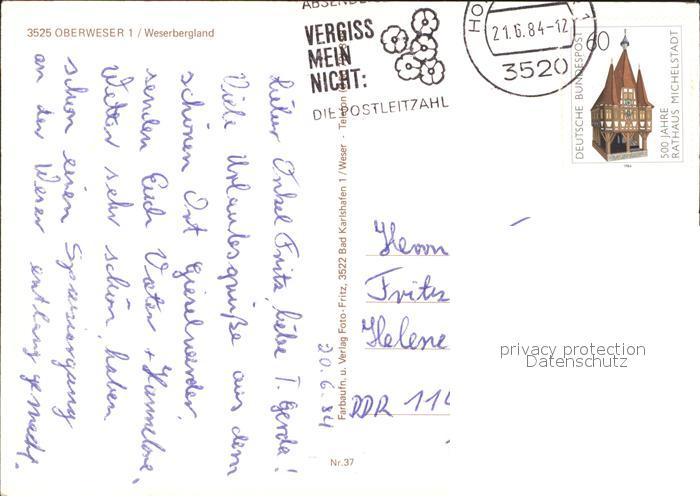 3525 OBERWESER 1 / Weserbergland
ABSENDE
VERGISS
MEIN
NICHT:
DIE POSTLEITZAHL
21.6.84-12
3520
60
DEUTSCHE BUNDESPOST
500 JAHRE
RATHAUS MICHELSTADT
1984
Lieber Onkel Fritz, liebe T. Gerda!
Viele Urlaubsgrüße aus dem
schönen Ort Gieselwerder,
senden Euch Vater + Hannelore.
Wetter sehr schön, haben
schon einen Spaziergang
an der Weser entlang gemacht.
20.6.84
Farbaufn. u. Verlag Foto-Fritz, 3522 Bad Karlshafen 1 / Weser - Telefon
Nr.37
Herrn
Fritz
Helene
DDR 114
privacy protection
Datenschutz